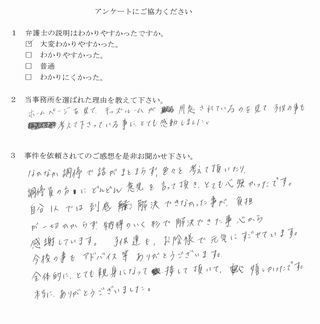 アンケートにご協力ください
1 弁護士の説明はわかりやすかったですか。
☑ 大変わかりやすかった。
□ わかりやすかった。
□ 普通
□ わかりにくかった。
2 当事務所を選ばれた理由を教えて下さい。
ホームページを見て、キッズルームが 用意されているのを見て、子供の事も
考えて下さっている事にとても感動しました。
3 事件を依頼されてのご感想を是非お聞かせ下さい。
なかなか調停で話がまとまらず、色々と考えて頂いたり、
調停員の方にどんどん意見を言って頂き、とても心強かったです。
自分1人では到底 解決できなかった事が、負担
が一切かからず納得のいく形で解決できた事、心から
感謝しています。 子供達も、お陰様で元気にすごせています。
今後の事もアドバイス等 ありがとうございます。
全体的に、とても親身になって 接して頂いて、 嬉しかったです。
本当に ありがとうございました。